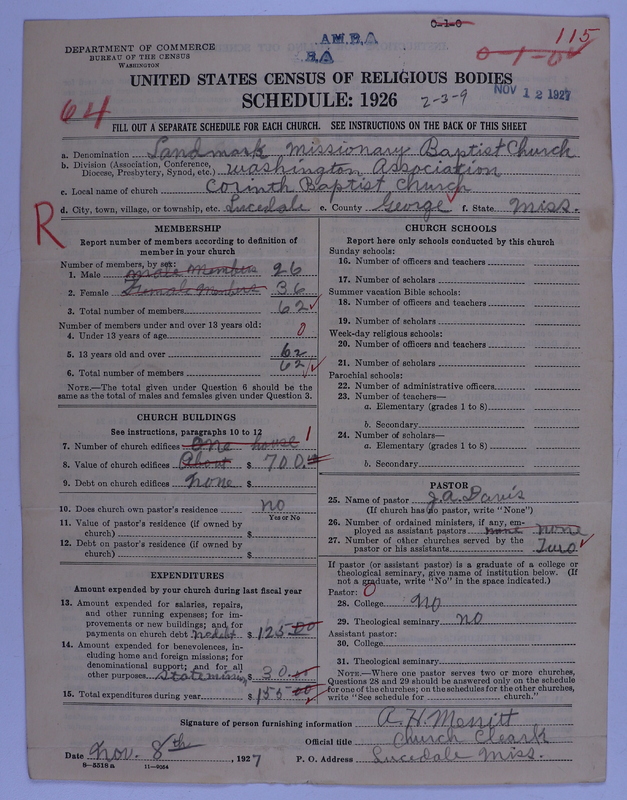 0-1-0
A.M.B.A
B.A
115
0-1-0
DEPARTMENT OF COMMERCE
BUREAU OF THE CENSUS
WASHINGTON
UNITED STATES CENSUS OF RELIGIOUS BODIES
SCHEDULE: 1926
2-3-9
NOV 12 1927
64
FILL OUT A SEPARATE SCHEDULE FOR EACH CHURCH. SEE INSTRUCTIONS ON THE BACK OF THIS SHEET
a. Denomination Landmark Missionary Baptist Church
b. Division (Association, Conference, Diocese, Presbytery, Synod, etc.) Washington Association
c. Local name of church Corinth Baptist Church
d. City, town, village, or township, etc. Lucedale e. County George f. State Miss.
R
MEMBERSHIP
Report number of members according to definition of
member in your church
Number of members, by sex:
1. Male male members 26
2. Female Female members 36
3. Total number of members 62
Number of members under and over 13 years old:
4. Under 13 years of age 0
5. 13 years old and over 62
6. Total number of members 62
NOTE.—The total given under Question 6 should be the
same as the total of males and females given under Question 3.
CHURCH BUILDINGS
See instructions, paragraphs 10 to 12
7. Number of church edifices One house 1
8. Value of church edifices About $ 700.00
9. Debt on church edifices none $
10. Does church own pastor's residence no
Yes or No
11. Value of pastor's residence (if owned by
church) $
12. Debt on pastor's residence (if owned by
church) $
EXPENDITURES
Amount expended by your church during last fiscal year
13. Amount expended for salaries, repairs,
and other running expenses; for im-
provements or new buildings; and for
payments on church debt no debt $ 125.00
14. Amount expended for benevolences, in-
cluding home and foreign missions; for
denominational support; and for all
other purposes State missions $ 30.00
15. Total expenditures during year $ 155.00
CHURCH SCHOOLS
Report here only schools conducted by this church
Sunday schools:
16. Number of officers and teachers
17. Number of scholars
Summer vacation Bible schools:
18. Number of officers and teachers
19. Number of scholars
Week-day religious schools:
20. Number of officers and teachers
21. Number of scholars
Parochial schools:
22. Number of administrative officers
23. Number of teachers—
a. Elementary (grades 1 to 8)
b. Secondary
24. Number of scholars—
a. Elementary (grades 1 to 8)
b. Secondary
PASTOR
25. Name of pastor J.A. Davis
(If church has no pastor, write "None")
26. Number of ordained ministers, if any, em-
ployed as assistant pastors none none
27. Number of other churches served by the
pastor or his assistants Two
If pastor (or assistant pastor) is a graduate of a college or
theological seminary, give name of institution below. (If
not a graduate, write "No" in the space indicated.)
Pastor: 0
28. College no
29. Theological seminary no
Assistant pastor:
30. College
31. Theological seminary
NOTE.—Where one pastor serves two or more churches,
Questions 28 and 29 should be answered only on the schedule
for one of the churches; on the schedules for the other churches,
write "See schedule for church."
Signature of person furnishing information A. H. Merritt
Official title Church Cleark
Date Nov. 8th, 1927 P. O. Address Lucedale Miss.
8-5318a 11-9054